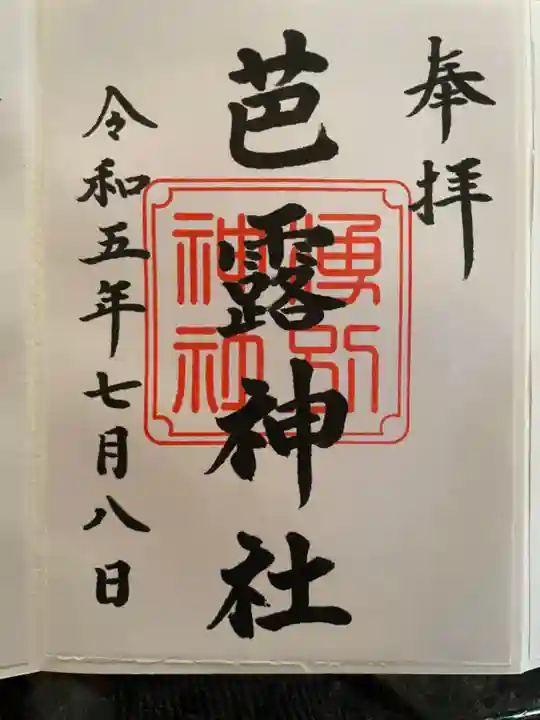 奉拝
芭露神社
湧別
神社
令和五年七月八日